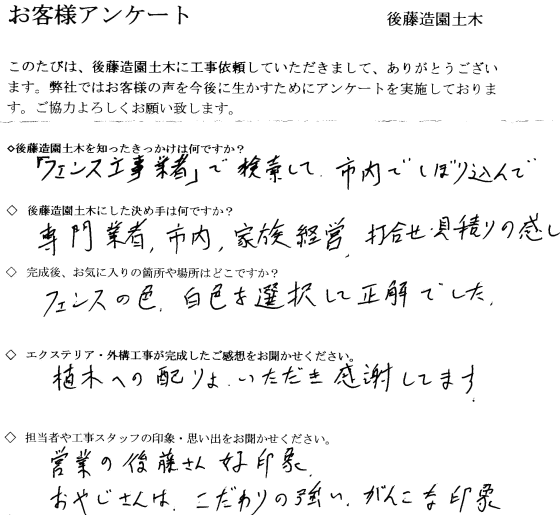 お客様アンケート
後藤造園土木
このたびは、後藤造園土木に工事依頼していただきまして、ありがとうござい
ます。弊社ではお客様の声を今後に生かすためにアンケートを実施しておりま
す。ご協力よろしくお願い致します。
◇後藤造園土木を知ったきっかけは何ですか？
「フェンス工事業者」で検索して、市内でしぼり込んで
◇ 後藤造園土木にした決め手は何ですか？
専門業者,市内,家族経営,打合せ・見積りの感じ
◇ 完成後、お気に入りの箇所や場所はどこですか？
フェンスの色,白色を選択して正解でした,
◇ エクステリア・外構工事が完成したご感想をお聞かせください。
植木への配りょ、いただき感謝してます,
◇ 担当者や工事スタッフの印象・思い出をお聞かせください。
営業の後藤さん好印象,
おやじさんは、こだわりの強い、がんこな印象